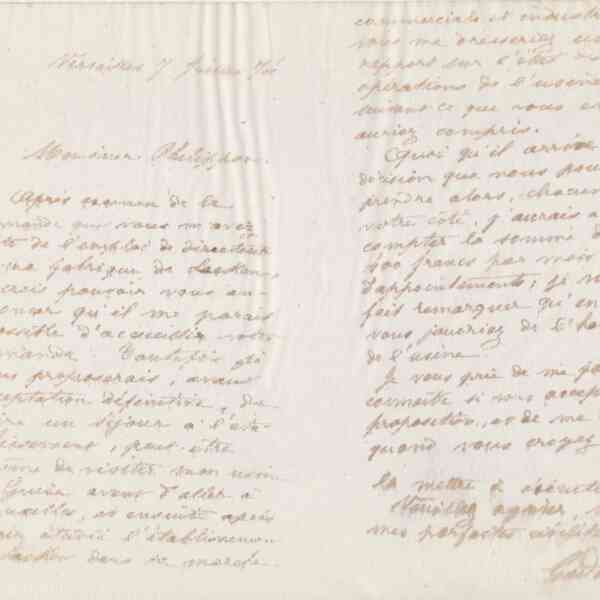 Versailles 7 février
Monsieur Philippon
Après examen de la
mande que vous m'avez
te de l'emploi de directeur
ma fabrique de Laeken
crois pouvoir vous an-
noncer qu'il me parait
possible d'accueillir votre
mande. Toutefois je
us proposerais, avant
ceptation définitive, de
ire un séjour à l'éta-
blissement, peut être
même de visiter mon usine
Guise avant d'aller à
uxelles, et ensuite après
étudié l'établissement
Laeken dans sa marche
commerciale et industri
vous me dresseriez un
rapport sur l'état de
opérations de l'usine
suivant ce que vous en
auriez compris.
Quoi qu'il arrive
décision que nous pou
prendre alors, chacun
votre côté, j'aurais à
compter la somme d
francs par mois
d'appointements; je v
fais remarquer qu'en
vous joueriez de l'ha
de l'usine
Je vous prie de me fa
connaitre si vous accep
proposition, et de me
quand vous croyez
la mettre à exécuti
Veuillez agréer,
mes parfaites civilités
God